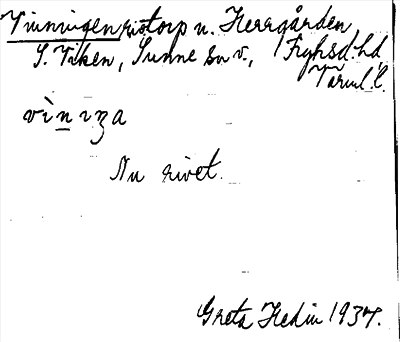 Vinningen ristorp u. Herrgården
S. Viken, Sunne sn v., Fryksd. hd
Värml. l.
vìnıȝa
Nu rivet.
Greta Hedin 1937.